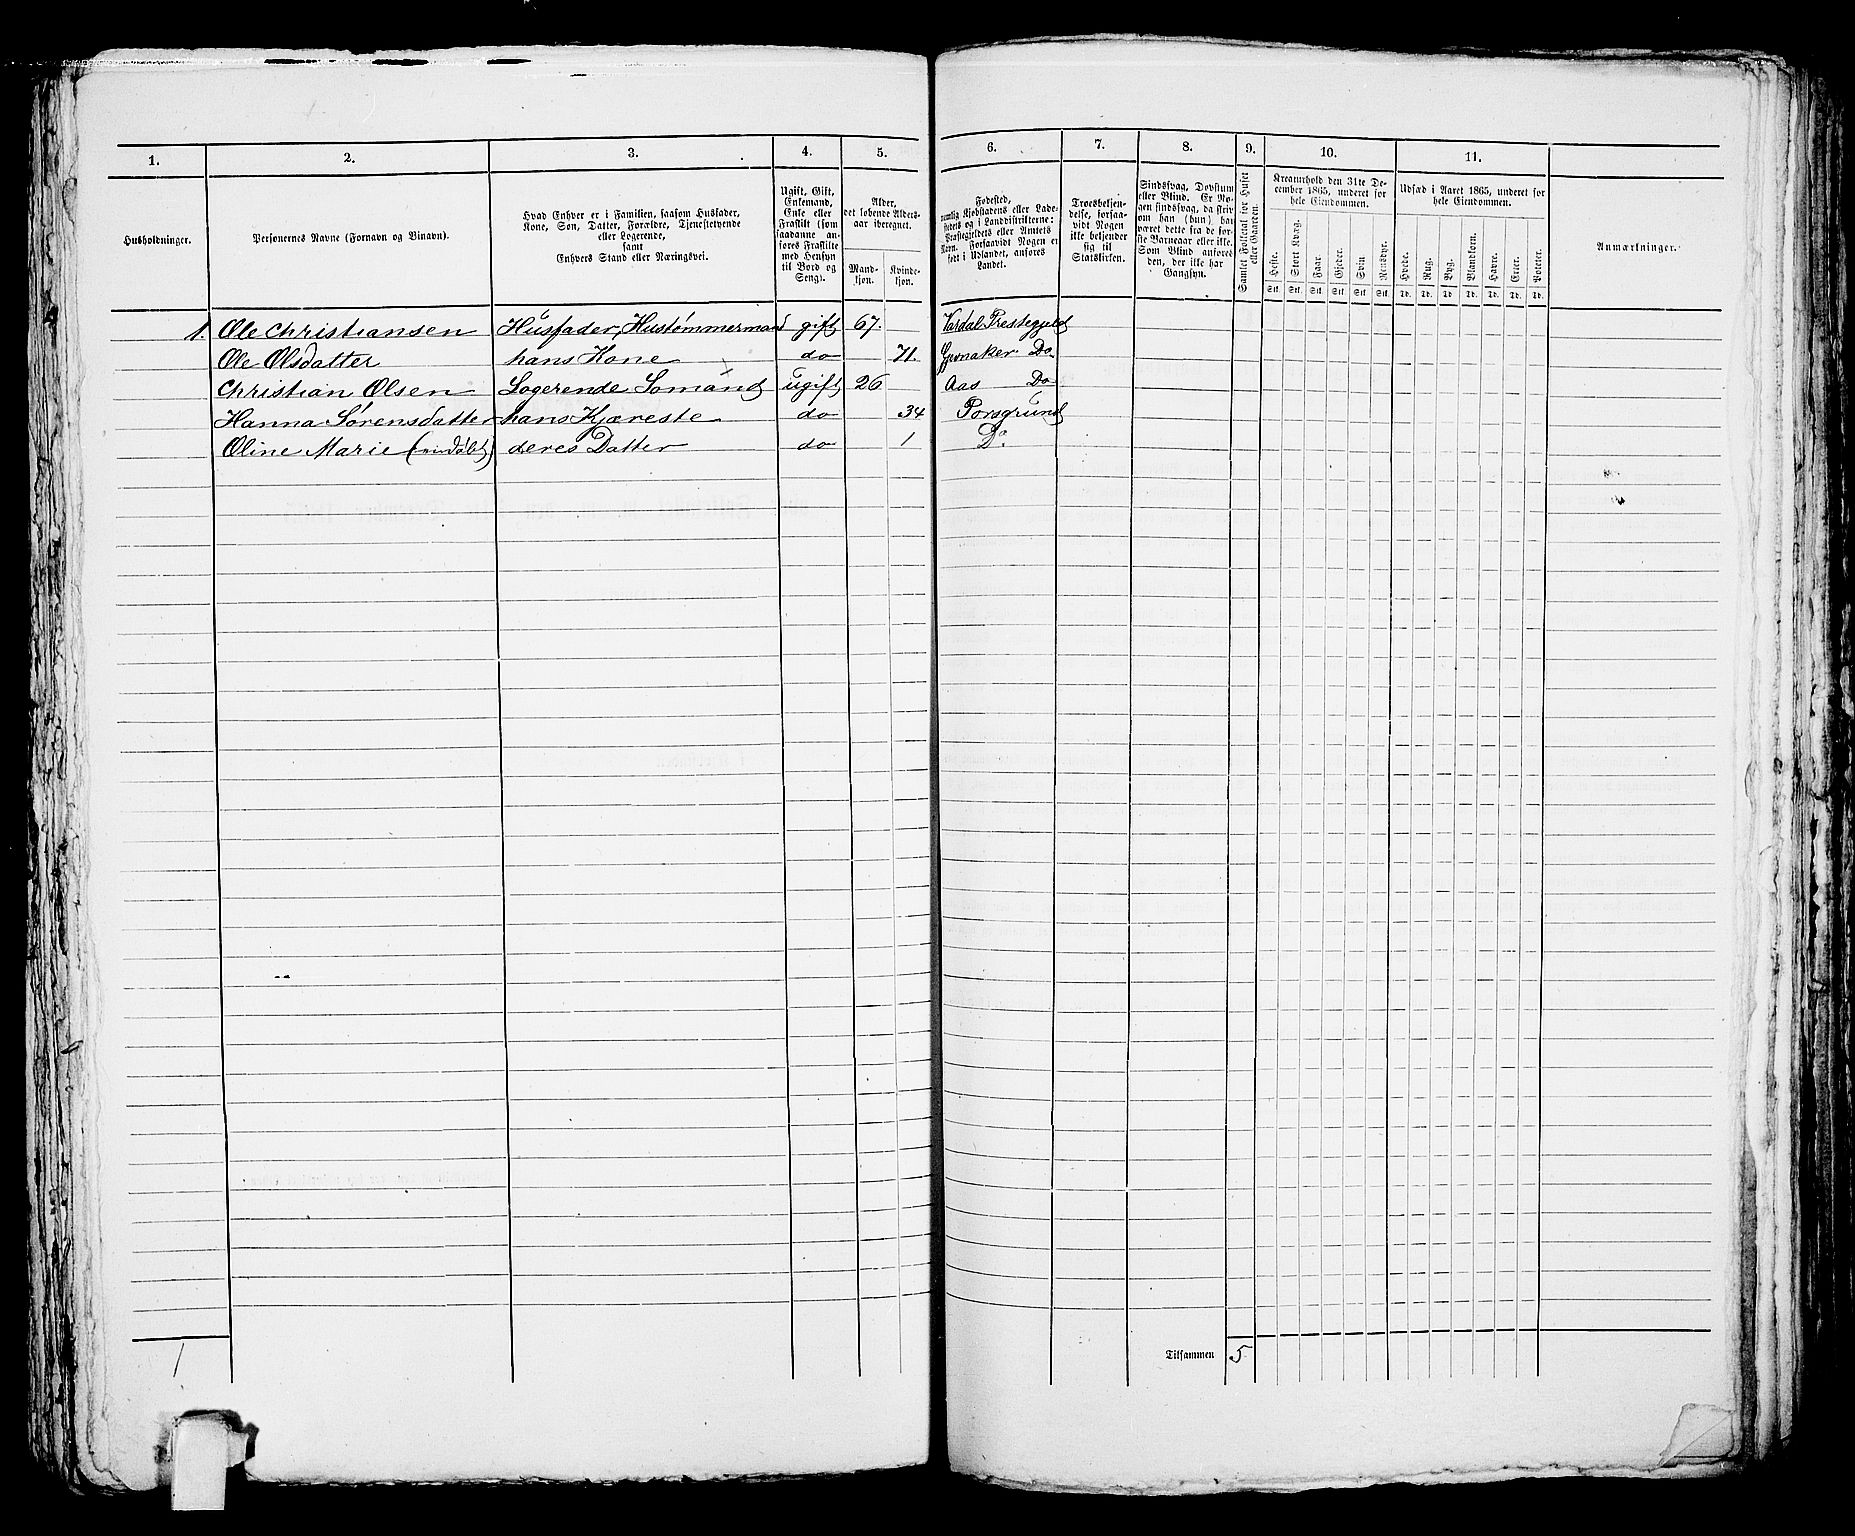 1. 2. 3. 4. 5. 6. 7. 8. 9. 10. 11.
Husholdninger.
Personernes Navne (Fornavn og Binavn).
Hvad Enhver er i Familien, saasom Husfader,
Kone, Søn, Datter, Forældre, Tjenestetyende
eller Logerende,
samt
Enhvers Stand eller Næringsvei.
Ugift, Gift,
Enkemand,
Enke eller
Fraskilt (som
saadanne an-
føres Fraskilte
med Hensyn
til Bord og
Seng).
Alder,
det løbende Alders-
aar iberegnet.
Mand-
kjøn.
Kvinde-
kjøn.
Fødested,
nemlig Kjøbstadens eller Lade-
stedets og i Landdistrikterne:
Præstegjeldets eller Amtets
Navn. Forsaavidt Nogen er
født i Udlandet, anføres
Landet.
Troesbekjen-
delse, forsaa-
vidt Nogen
ikke bekjender
sig til
Statskirken.
Sindssvag, Døvstum
eller Blind. Er No-
gen sindssvag, da skriv
om han (hun) har
været dette fra de før-
ste Barneaar eller ikke.
Som Blind anføres
den, der ikke har
Gangsyn.
Samlet Folketal for Huset
eller Gaarden.
Kreaturhold den 31te De-
cember 1865, underet for
hele Eiendommen.
Heste. Stort Kvæg. Faar. Gjeder. Svin. Rensdyr.
Stk. Stk. Stk. Stk. Stk. Stk.
Udsæd i Aaret 1865, underet for
hele Eiendommen.
Hvede. Rug. Byg. Blandkorn. Havre. Erter. Poteter.
Td. Td. Td. Td. Td. Td. Td.
Anmærkninger.
1. Ole Christiansen Husfader, Hustømmermand gift 67. Vardal Prestegjeld
Ole Olsdatter hans Kone do 71. Do
Christian Olsen Logerende Sømand ugift 26 Aas Do
Hanna Sørensdatter hans Kjæreste do 34 Porsgrund
Oline Marie (nudøbt) deres Datter do 1 Do.
1
Tilsammen 5.